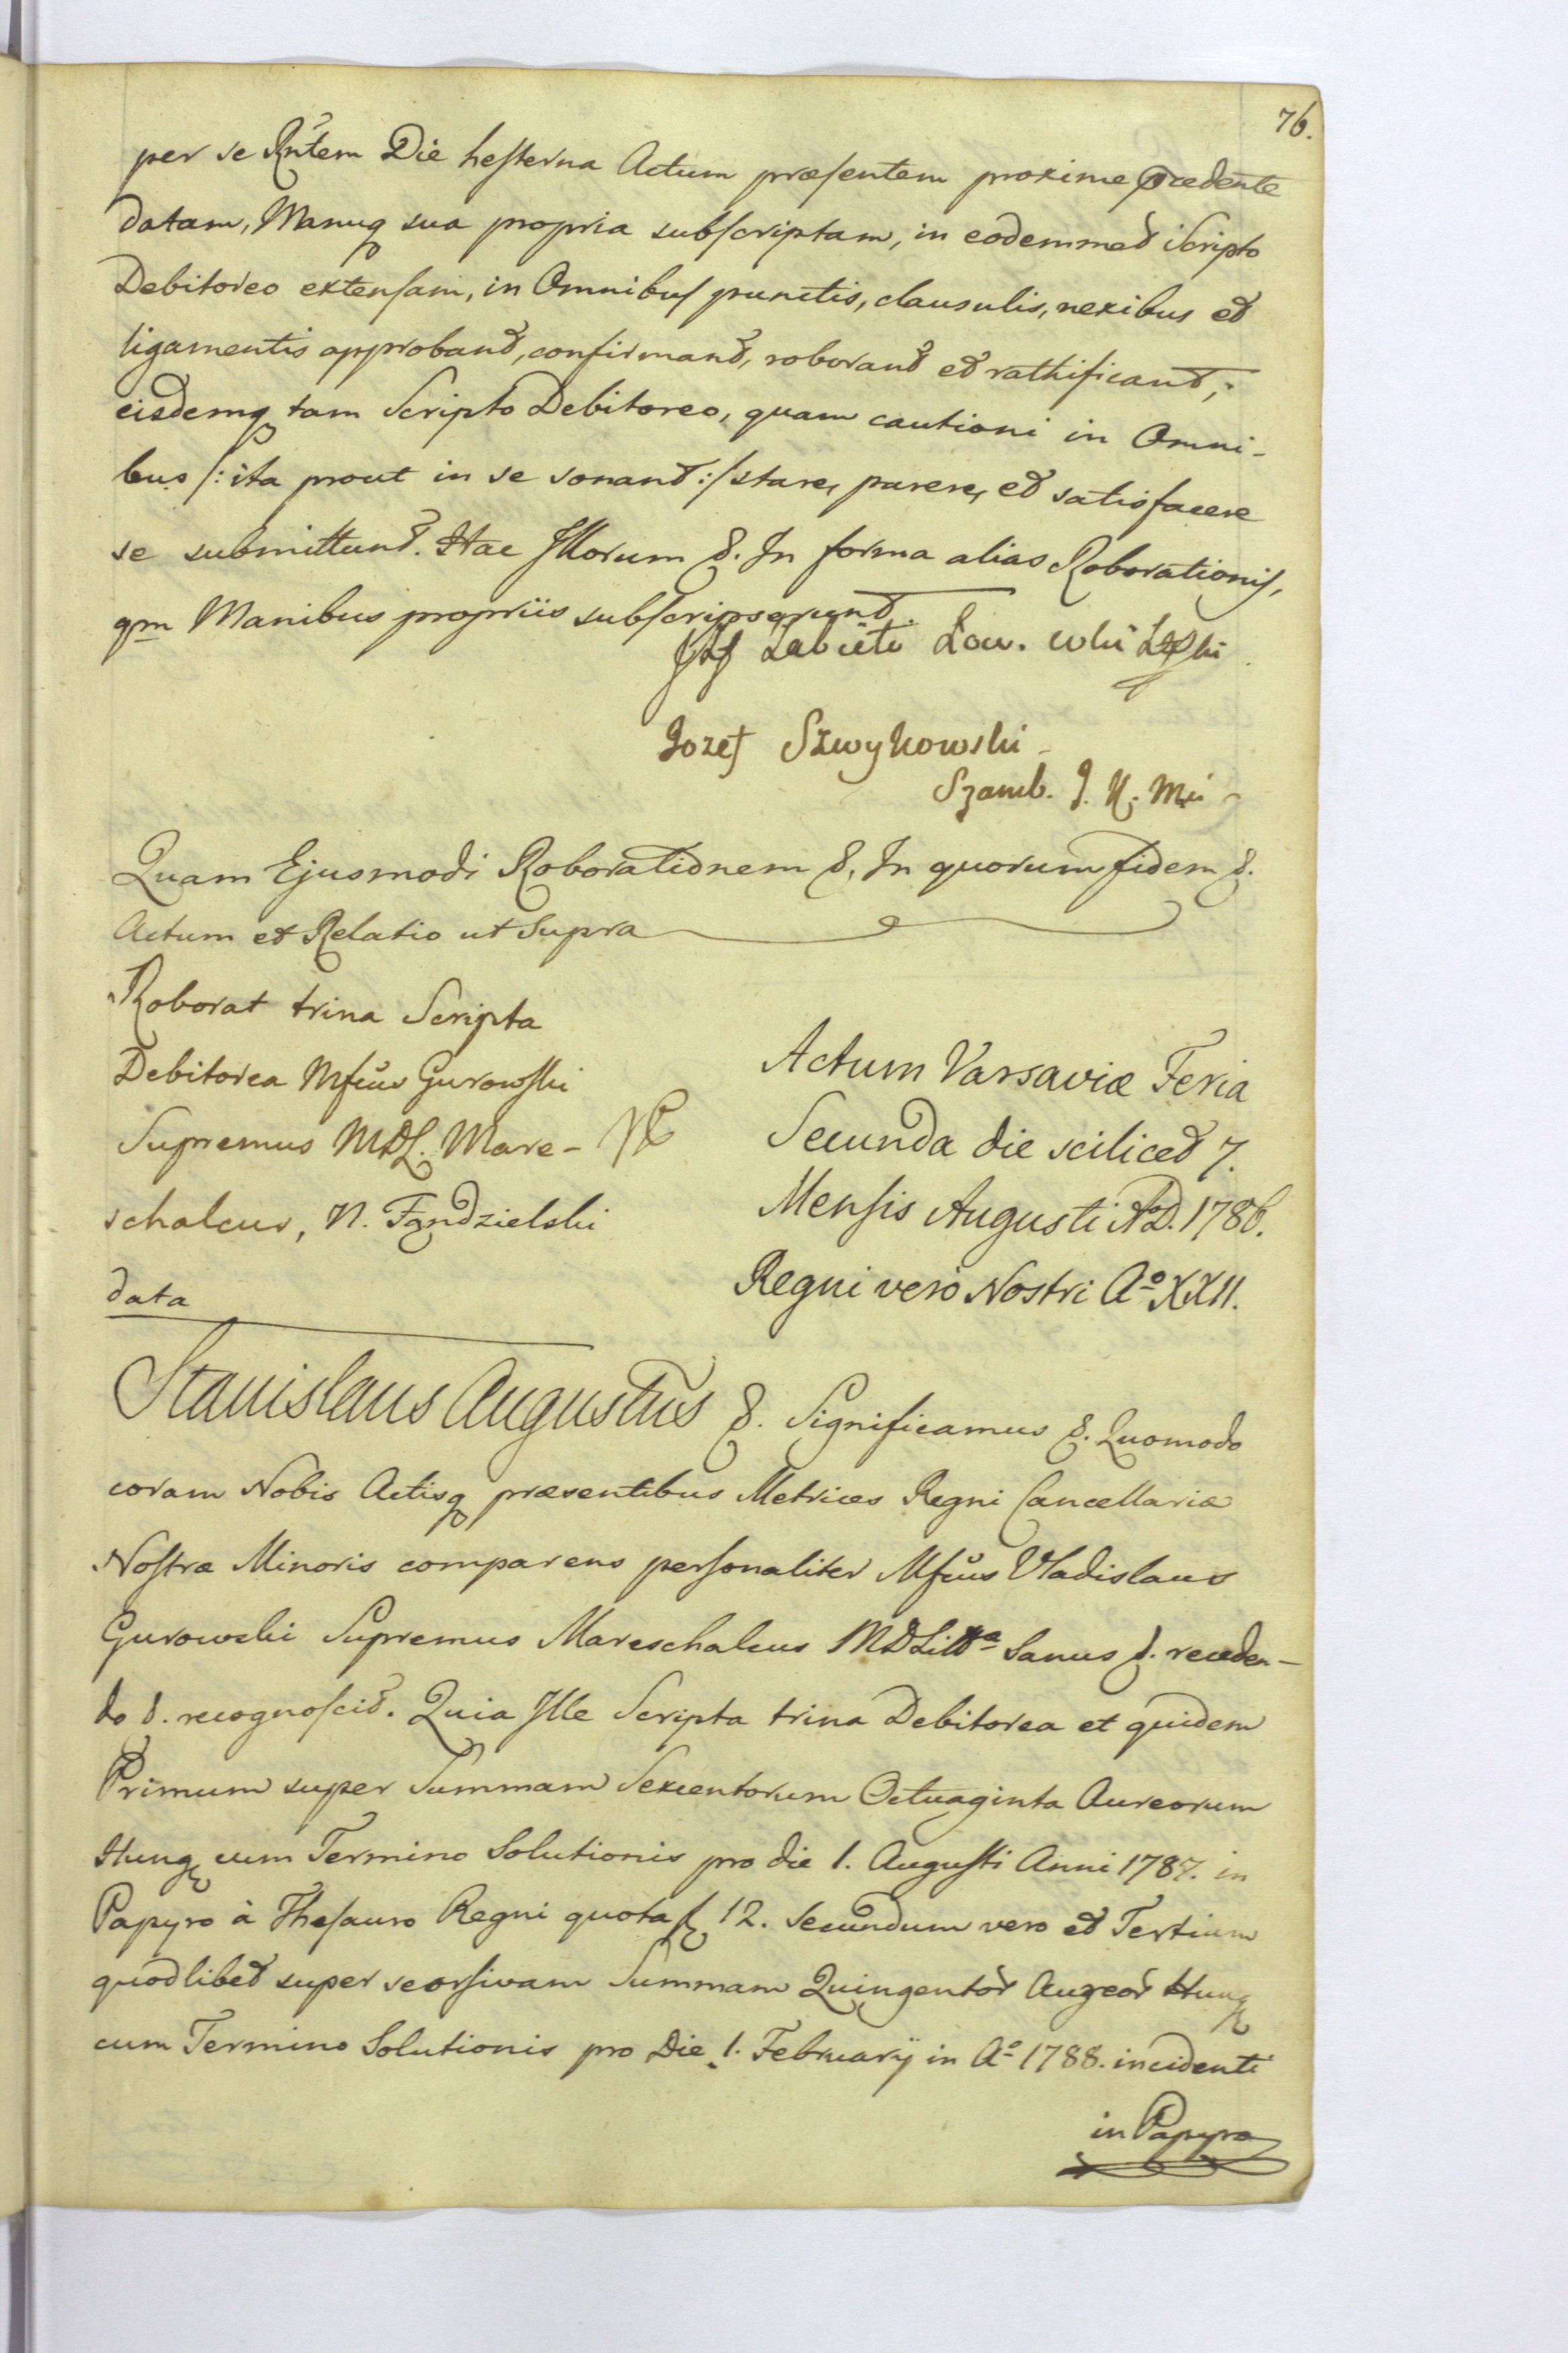 76.
per se Rñtem Die hesterna Actum præsentem proxime præcedente
datam, Manuq sua propria subscriptam, in eodemmet Scripto
Debitoreo extensam, in Omnibus punctis, clausulis, nexibus et
ligamentis approbant, confirmant, roborant et rathificant,;
eisdemq tam Scripto Debitoreo, quam cautioni in Omni-
bus /: ita prout in se sonant :/ stare, parere, et satisfacere
se submittunt. Hac Illorum &. In forma alias Roborationis,
qm Manibus propriis subscripserunt.
Łow.
Jozef Szwykowski
Szamb. J. K. Mci
Quam Ejusmodi Roborationem &. In quorum fidem &.
Actum et Relatio ut Supra
Roborat trina Scripta
Debitorea Mfcus Gurowski
Supremus MDL. Mare-
schalcus, N. Fandzielski
data
Actum Varsaviæ Feria
Secunda die scilicet 7.
Mensis Augusti A.D. 1786.
Regni vero Nostri Aº XXII.
Stanislaus Augustus &. Significamus &. Quomodo
coram Nobis Actisq præsentibus Metrices Regni Cancellariæ
Nostræ Minoris comparens personaliter Mfcus Vladislaus
Gurowski Supremus Mareschalcus MDLittæ Sanus &. receden-
do &. recognoscit. Quia Ille Scripta trina Debitorea et quidem
Primum super Summam Sexcentorum Octuaginta Aureorum
Hung cum Termino Solutionis pro die 1. Augusti Anni 1787. in
Papyro à Thesauro Regni quota f 12. Secundum vero et Tertium
quodlibet super seorsivam Summam Quingentor Aureor Hung
cum Termino Solutionis pro Die 1. Februarÿ in Aº 1788. incidenti
in Papyro